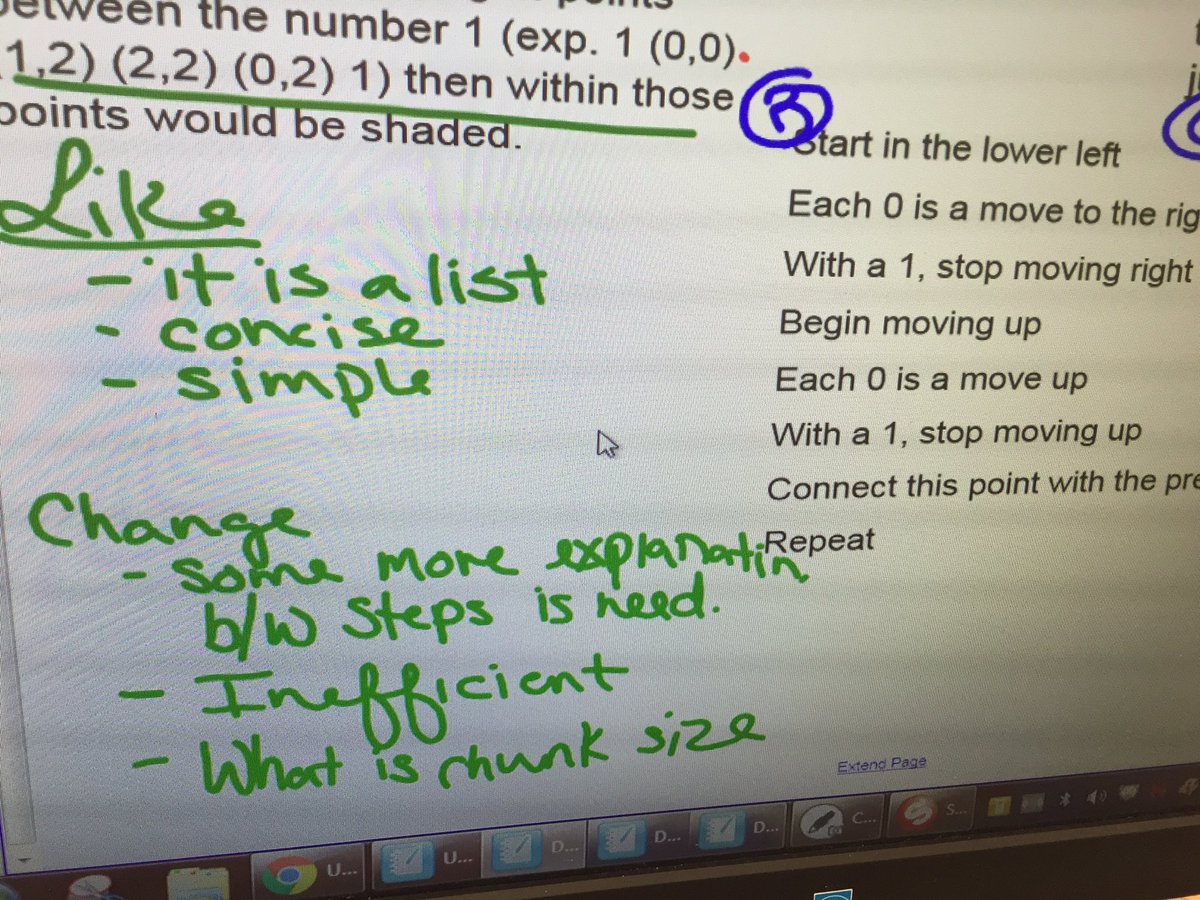 between the number 1 (exp. 1 (0,0).
(1,2) (2,2) (0,2) 1) then within those
points would be shaded.
Like
- it is a list
- concise
- simple
Change
- some more explanatin
b/w steps is need.
- Inefficient
- What is chunk size
3
Start in the lower left
Each 0 is a move to the rig
With a 1, stop moving right
Begin moving up
Each 0 is a move up
With a 1, stop moving up
Connect this point with the pre
Repeat
Extend Page
U...
U...
D...
D...
D...
C...
S...